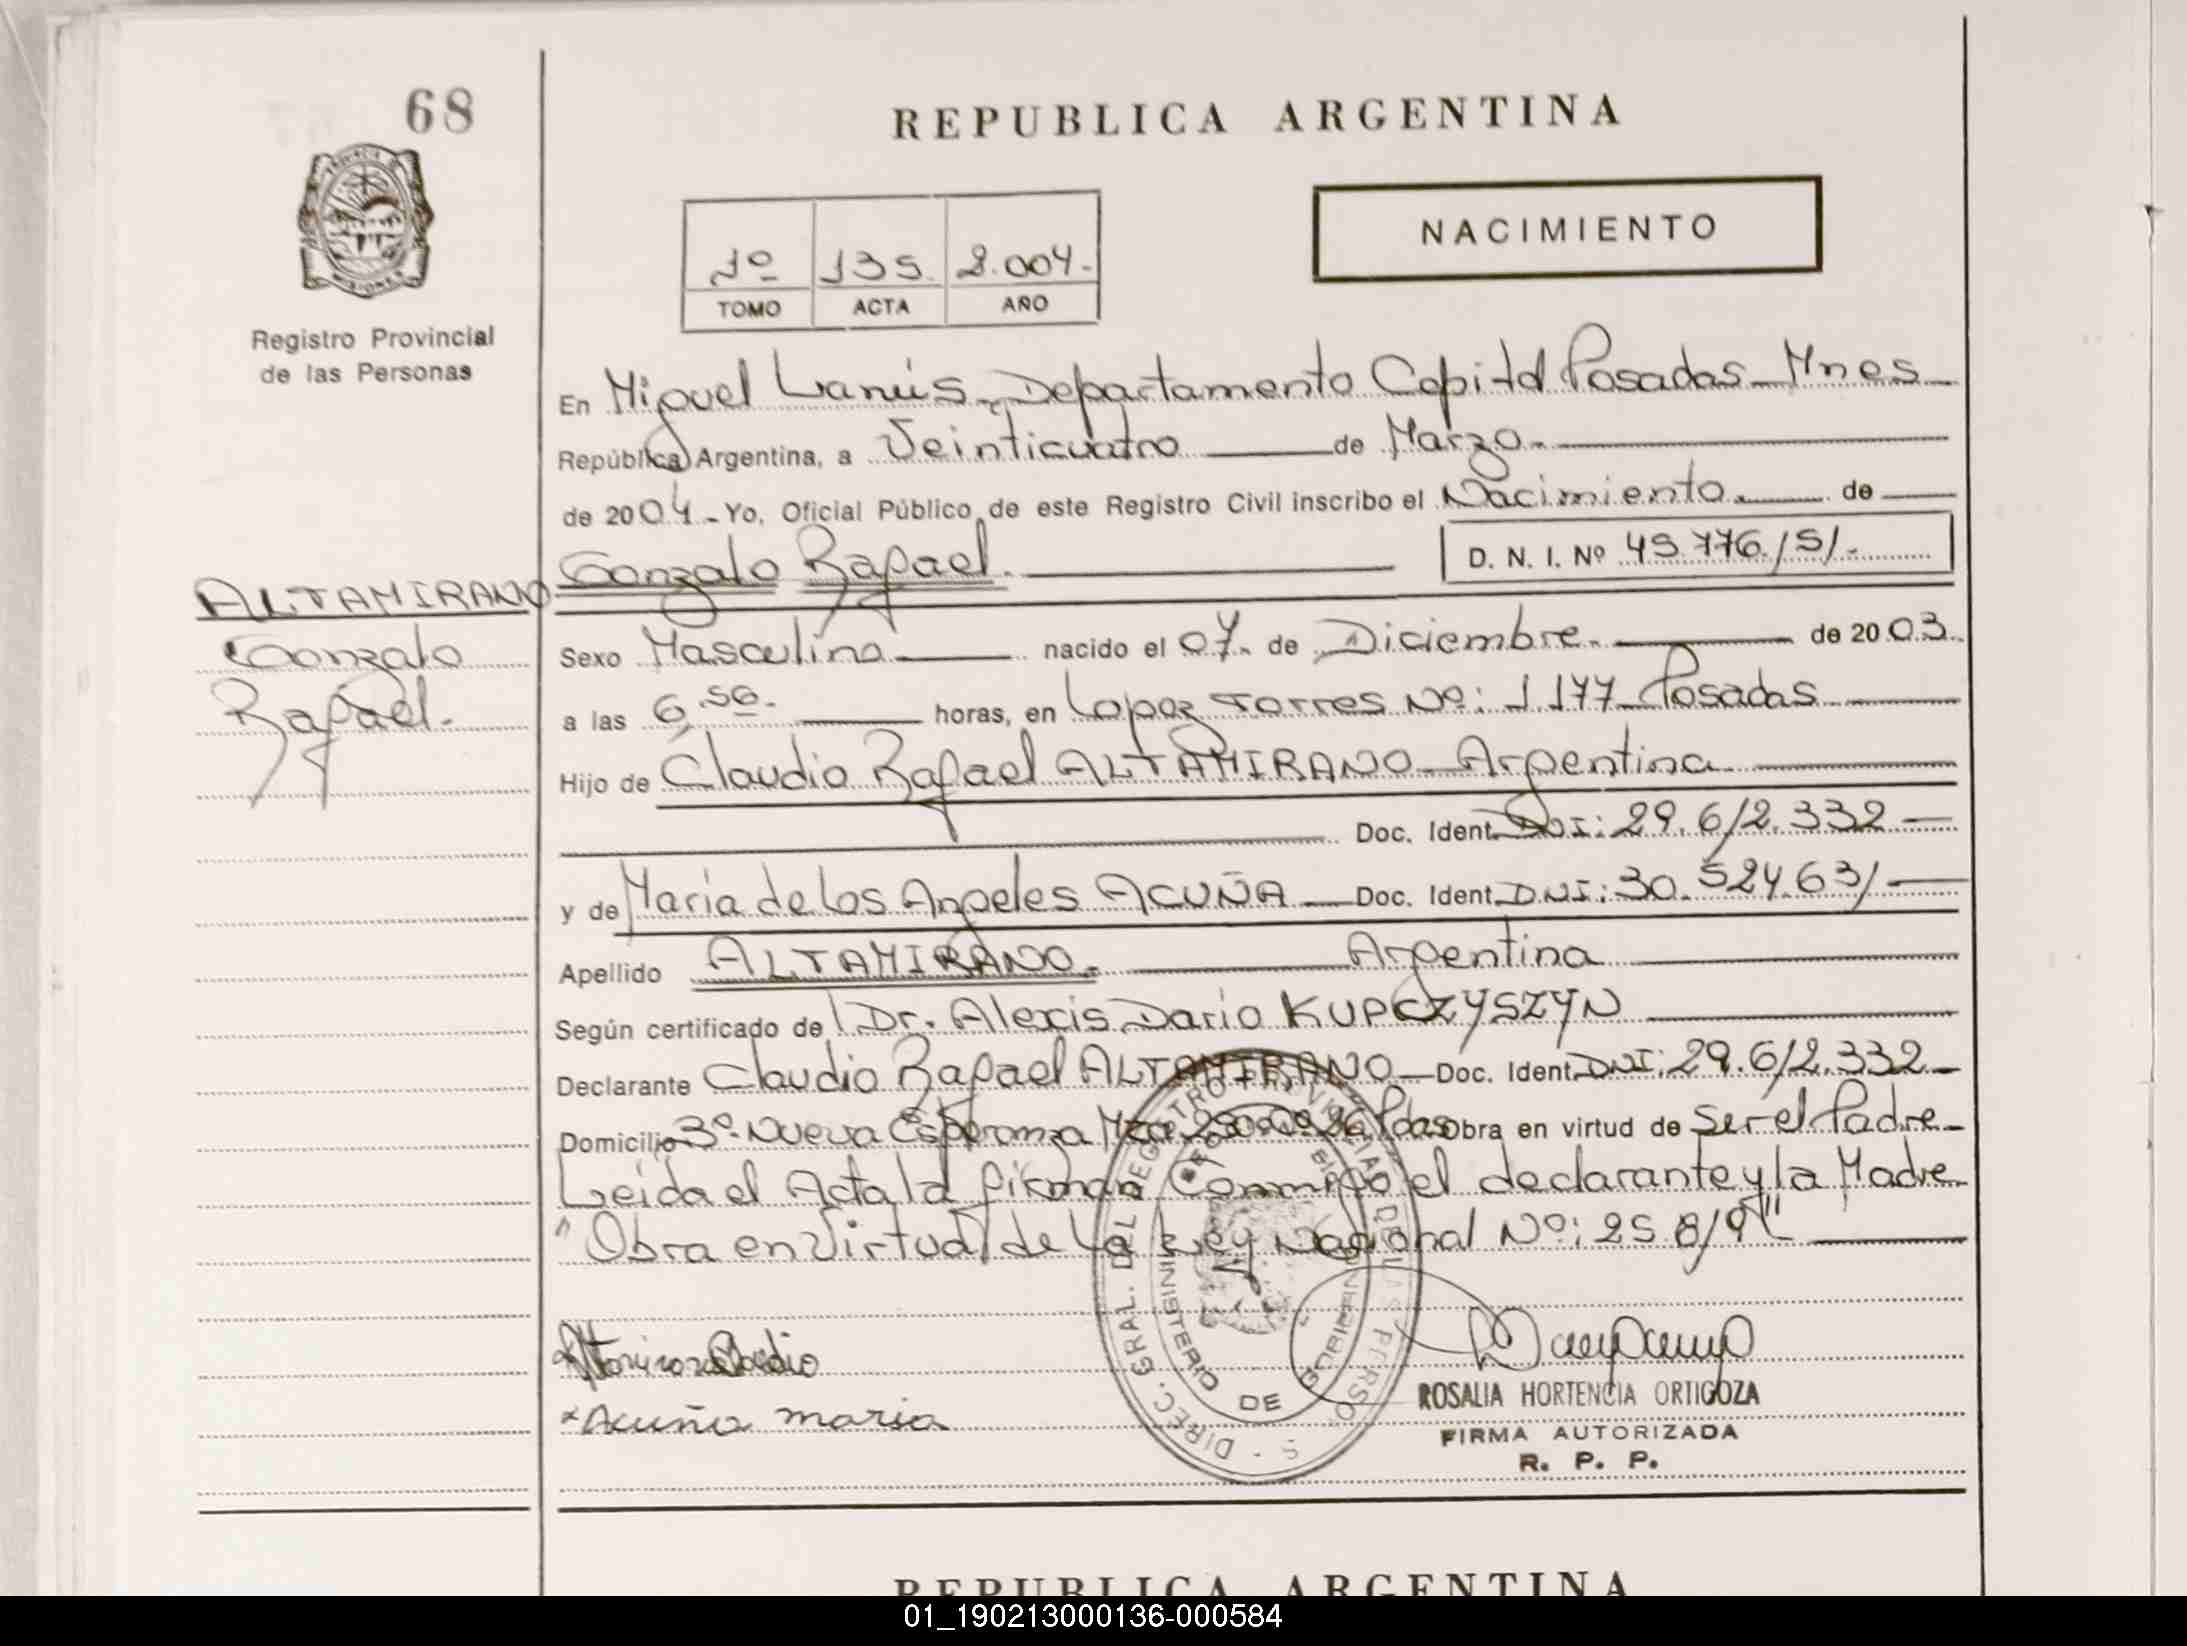 68
REPUBLICA ARGENTINA
NACIMIENTO
1º 135. 2.004.-
TOMO ACTA AÑO
Registro Provincial
de las Personas
En Miguel Lanús, Departamento Capital Posadas Mnes
República Argentina, a Veinticuatro de Marzo.
de 2004 - Yo, Oficial Público de este Registro Civil inscribo el Nacimiento. de
Gonzalo Rafael. D. N. I. Nº 45.776.151.
ALTAMIRANO
Gonzalo
Rafael.
Sexo Masculino nacido el 07. de Diciembre. de 2003.
a las 6,50. horas, en Lopez Torres Nº: 1177 Posadas
Hijo de Claudio Rafael ALTAMIRANO Argentina
Doc. Ident. DNI: 29.612.332
y de Maria de los Angeles ACUÑA Doc. Ident. DNI: 30.524.631
Apellido ALTAMIRANO. Argentina
Según certificado de Dr. Alexis Dario KUPCZYSZYN
Declarante Claudio Rafael ALTAMIRANO Doc. Ident. DNI: 29.612.332
Domicilio Bº Nueva Esperanza Mza Pdas Obra en virtud de ser el Padre
Leida el Acta la firman Conmigo el declarante y la Madre
"Obra en Virtud de La Ley Nacional Nº: 25.819"
Altamirano Claudio
x Acuña maria
ROSALIA HORTENCIA ORTIGOZA
FIRMA AUTORIZADA
R. P. P.
DIREC. GRAL. DEL REGISTRO PROVINCIAL DE LAS PERSO S
MINISTERIO DE GOBIERNO
REPUBLICA ARGENTINA
01_190213000136-000584